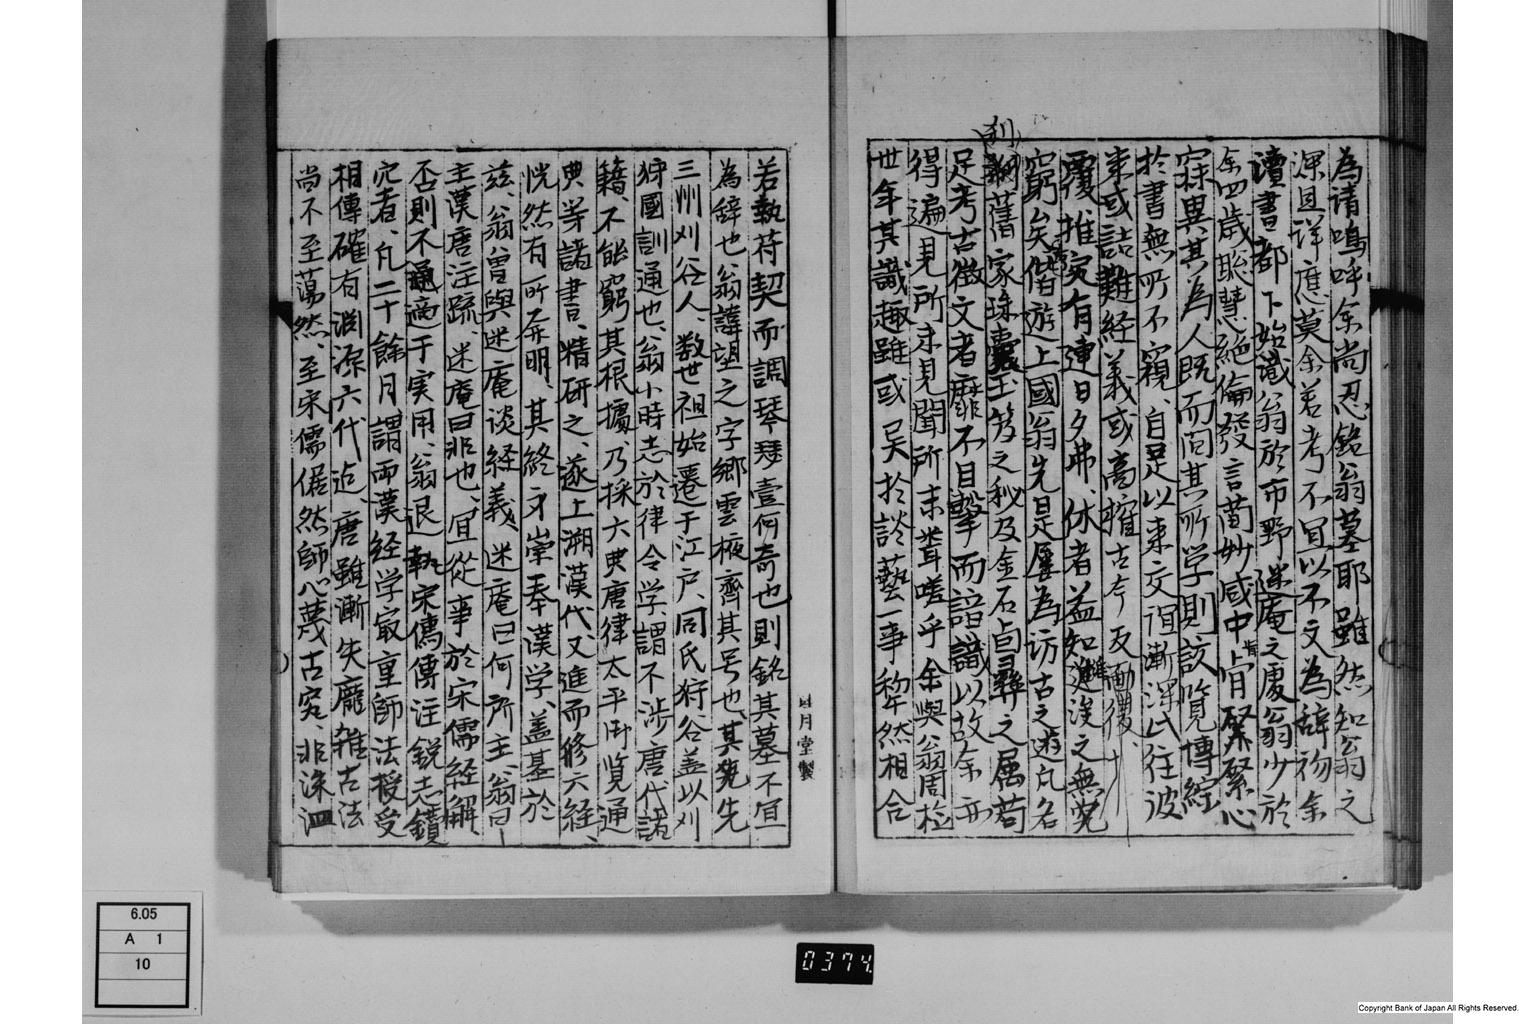 為請嗚呼余尚忍銘翁墓耶雖然知翁之
深且詳應莫余若考不宜以不文為辞初余
讀書都下始識翁於市野迷庵之處翁少於
余四歳聡慧絶倫發言荀妙咸中肯綮緊心
寀異其為人既而問其所学則該覧博綜
於書無所不窺、自是以来交誼漸深此往彼
来或詰難経義或商搉古今反
覆推究有連日夕弗休者益知之無究
窮矣偕遊上國翁先是屡為访古之遊凡名
刹舊家珠嚢玉笈之秘及金石卣彝之属苟
足考古徴文者靡不目撃而諳識以故余亦
得遍見所未見聞所未聞嗟乎余與翁周旋
世年其識趣雖或異於談藝一事犂然相合
若執符契而調琴瑟壹何奇也則銘其墓不宜
為辞也翁諱望之字郷雲棭齊其号也其先
三州刈谷人、数世祖始遷于江戸、同氏狩谷盖以刈
狩國訓通也、翁小時志於律令学謂不渉唐代諸
籍、不能窮其根據、乃採六典唐律太平御覧通
典等諸書、精研之、遂上溯漢代又進而修六経、
恍然有所弄明、其終身崇奉漢学、盖基於
茲、翁曽與迷庵谈経義、迷庵曰何所主、翁曰
主漢唐注疏、迷庵曰非也、宜從事於宋儒経解
否則不通適于実用、翁退執宋儒傳注鋭志鑚
究者、凡二十餘月謂両漢経学最重師法授受
相傳確有淵源六代迄唐雖漸失龐雑古法
尚不至蕩然、至宋儒倨然師心蔑古究、非洙泗
月堂製
6.05
A 1
10
0374
Copyright Bank of Japan All Rights Reserved.